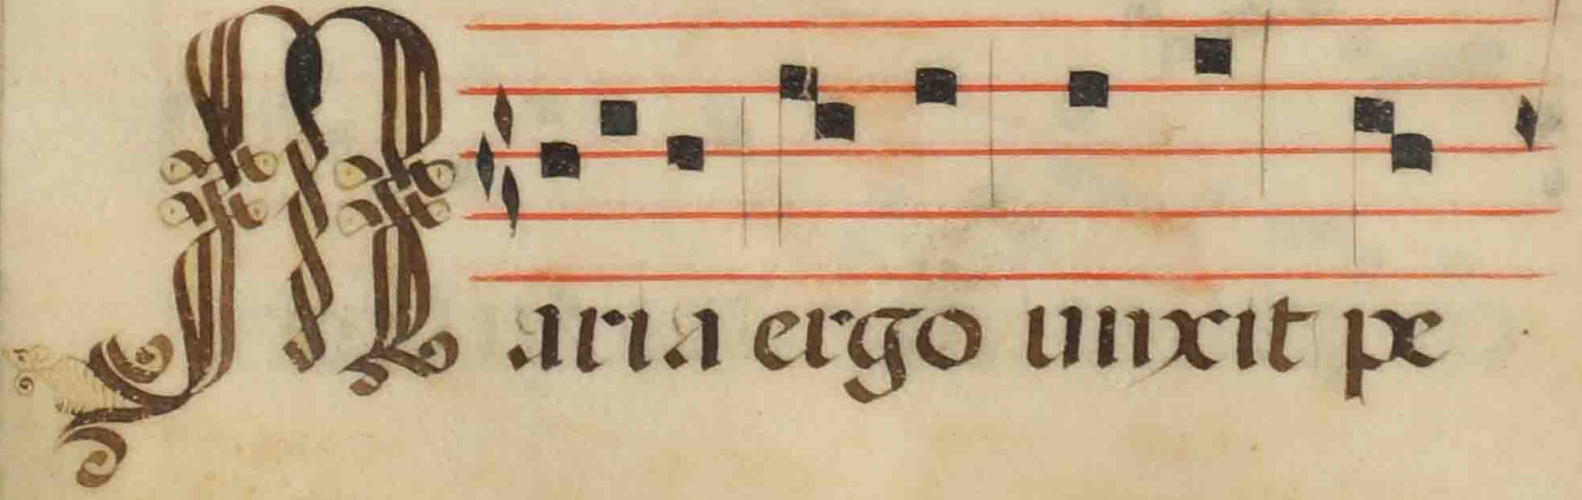 Maria ergo unxit pe